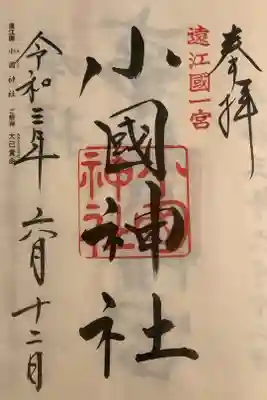 奉拝
遠江國一宮
小國神社
小國神社
令和三年 六月十二日
遠江國 小國神社 御祭神 大己貴命